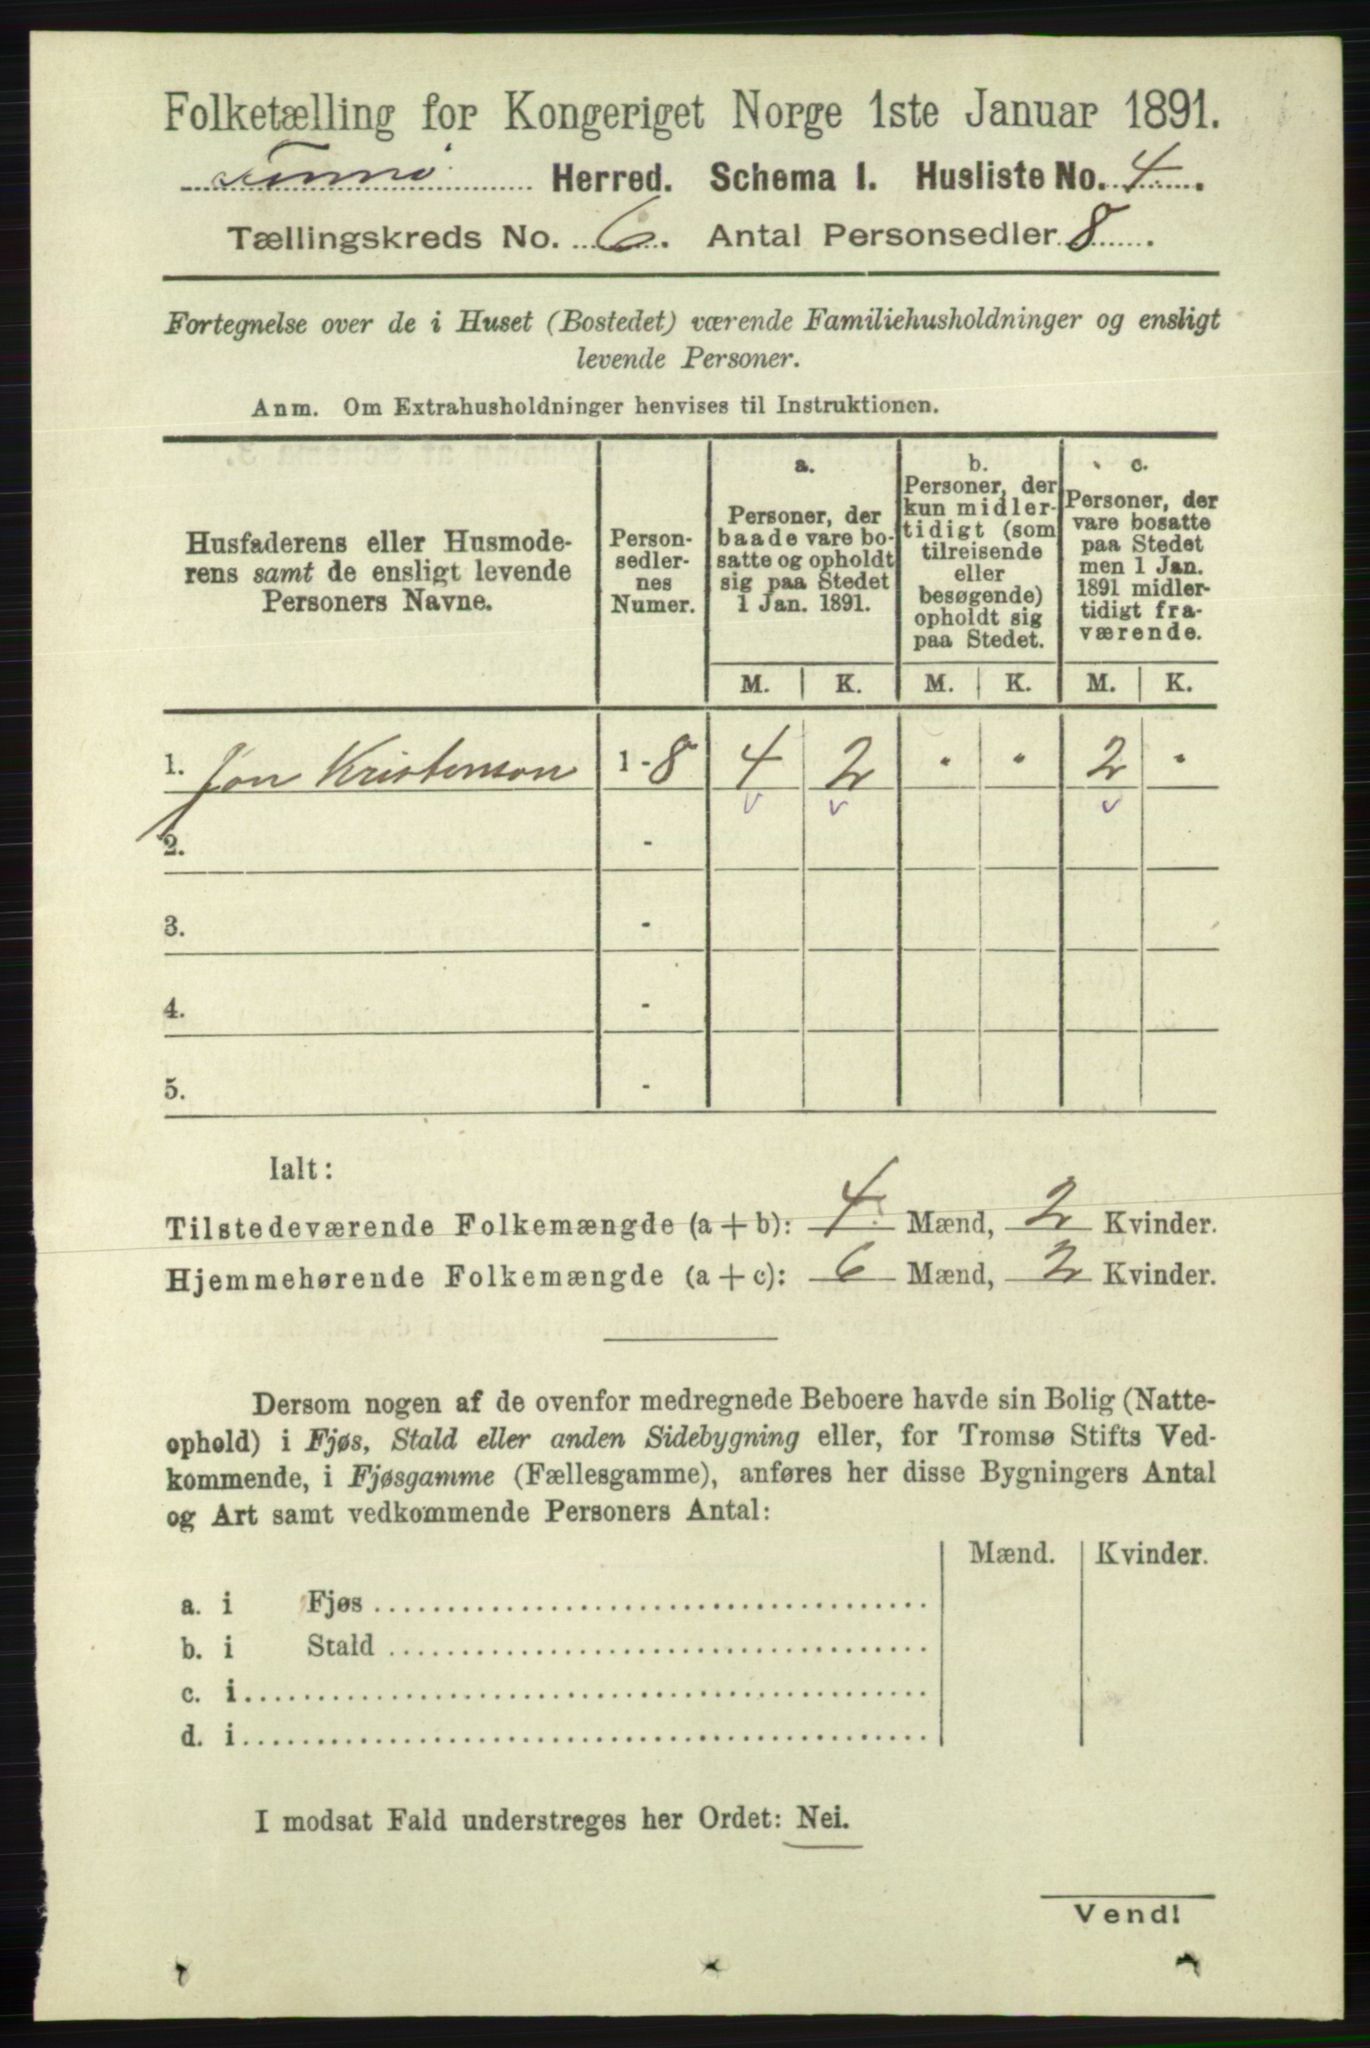 Folketælling for Kongeriget Norge 1ste Januar 1891.
Herred. Schema I. Husliste No. 4.
Tællingskreds No. 6. Antal Personsedler 8.
Fortegnelse over de i Huset (Bostedet) værende Familiehusholdninger og ensligt
levende Personer.
Anm. Om Extrahusholdninger henvises til Instruktionen.
Husfaderens eller Husmode-
rens samt de ensligt levende
Personers Navne.
Person-
sedler-
nes
Numer.
a.
Personer, der
baade vare bo-
satte og opholdt
sig paa Stedet
1 Jan. 1891.
b.
Personer, der
kun midler-
tidigt (som
tilreisende
eller
besøgende)
opholdt sig
paa Stedet.
c.
Personer, der
vare bosatte
paa Stedet
men 1 Jan.
1891 midler-
tidigt fra-
værende.
M. K. M. K. M. K.
1. Jon Kristenson 1-8 4 2 . . 2 .
v v v
2. -
3. -
4. -
5. -
Ialt:
Tilstedeværende Folkemængde (a + b): 4 Mænd, 2 Kvinder.
Hjemmehørende Folkemængde (a + c): 6 Mænd, 2 Kvinder.
Dersom nogen af de ovenfor medregnede Beboere havde sin Bolig (Natte-
ophold) i Fjøs, Stald eller anden Sidebygning eller, for Tromsø Stifts Ved-
kommende, i Fjøsgamme (Fællesgamme), anføres her disse Bygningers Antal
og Art samt vedkommende Personers Antal:
Mænd. Kvinder.
a. i Fjøs
b. i Stald
c. i
d. i
I modsat Fald understreges her Ordet: Nei.
Vend!